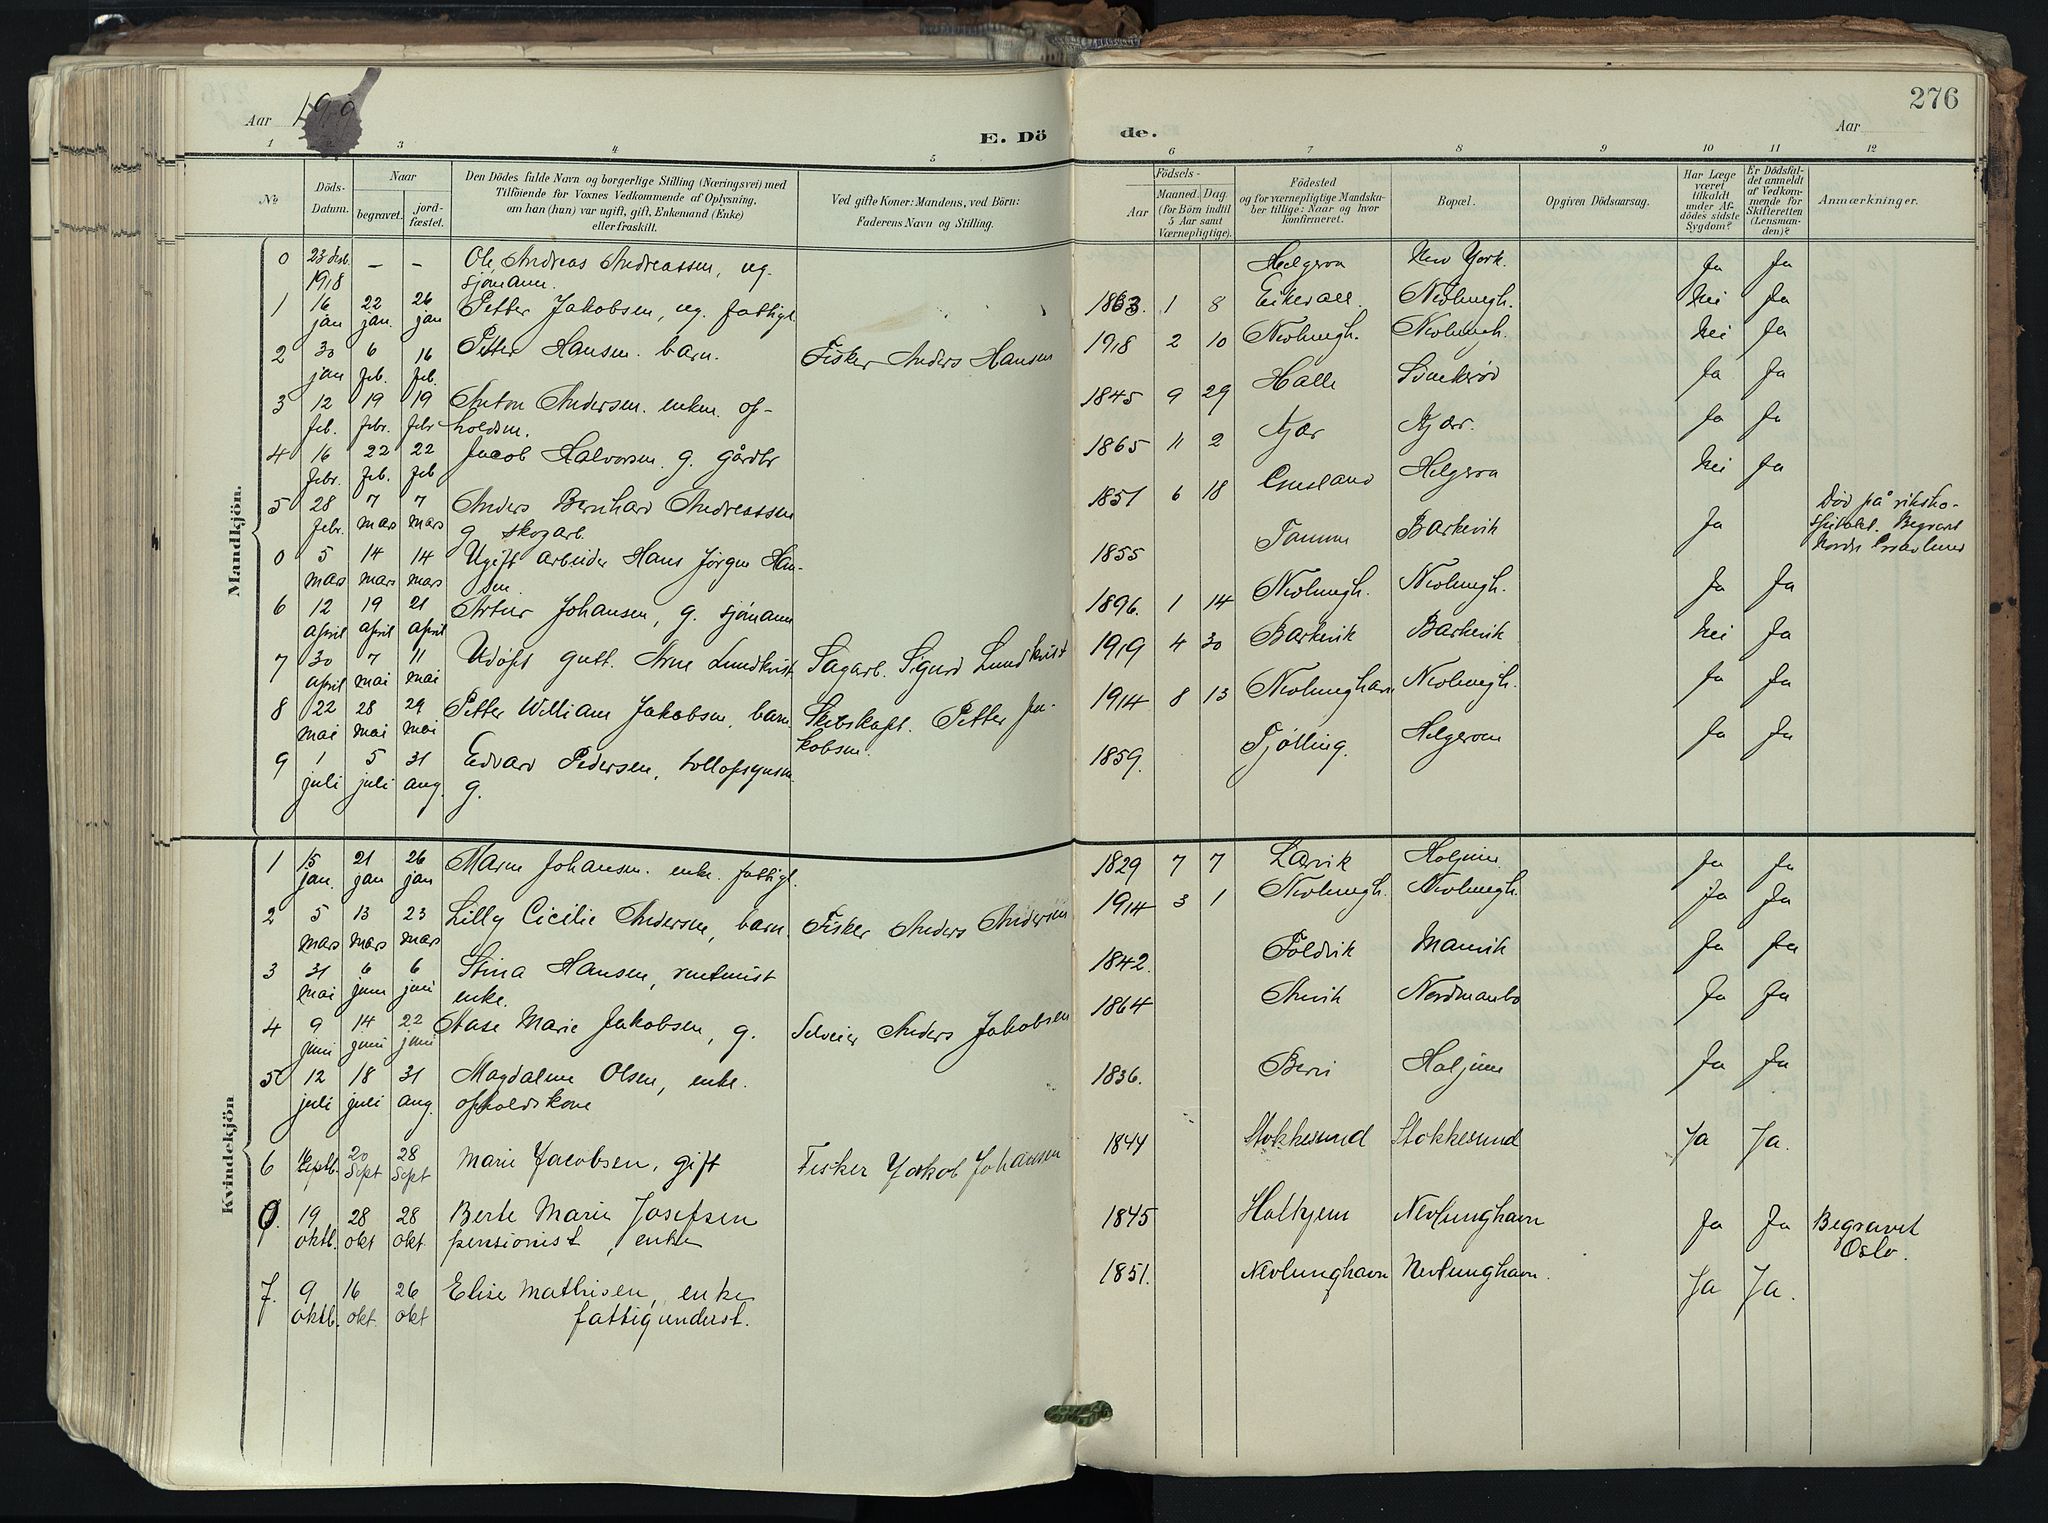 Aar 1919
E. Dö
de.
276
Aar
1 2 3 4 5 6 7 8 9 10 11 12
No
Döds-Datum.
Naar
begravet.
jord-fæstet.
Den Dödes fulde Navn og borgerlige Stilling (Næringsvei) med
Tilföiende for Voxnes Vedkommende af Oplysning,
om han (hun) var ugift, gift, Enkemand (Enke)
eller fraskilt.
Ved gifte Koner: Mandens, ved Börn:
Faderens Navn og Stilling.
Födsels-
Aar
Maaned.
Dag
(for Börn indtil
5 Aar samt
Værnepligtige).
Födested
og for værnepligtige Mandska-
ber tillige: Naar og hvor
konfirmeret.
Bopæl.
Opgiven Dödsaarsag.
Har Læge
været
tilkaldt
under Af-
dödes sidste
Sygdom?
Er Dödsfal-
det anmeldt
af Vedkom-
mende for
Skifteretten
(Lensman-
den)?
Anmærkninger.
Mandkjön.
0 23 des. 1918 – – Ole Andreas Andreassen, ug. sjømann. Helgeroa New York. Ja Ja
1 16 jan 22 jan. 26 jan Petter Jakobsen, ug. fattigl. 1863. 1 8 Nevlungh. Nei Ja
2 30 jan 6 feb. 16 feb. Petter Hansen. barn. Fisker Anders Hansen 1918 2 10 Nevlungh. Nevlungh. Nei Ja
3 12 feb. 19 febr. 19 febr Anton Andersen. enkem. op-
holdsm. 1845 9 29 Halle Ja Ja
4 16 febr. 22 feb. 22 feb Jacob Halvorsen. g. gårdbr 1865 11 2 Kjær Kjær. Ja Ja
5 28 febr. 7 mars 7 mars Anders Bernhard Andreassen
g skogarb. 1851 6 18 Helgeroa Nei Ja
0 5 mars 14 mars 14 mars Ugift arbeider Hans Jörgen Han-
sen. 1855 Tamm Barkevik Ja Død på riksho-
spitalet. Begravet
6 12 april 19 april 21 april Artur Johansen, g. sjømann 1896. 1 14 Nevlungh. Nevlungh. Ja Ja
7 30 april 7 mai 11 mai Udøpt gutt. Arne Lundkvist Sagarb. Sigurd Lundkvist 1919 4 30 Barkevik Barkevik Nei Ja
8 22 mai 28 mai 29 mai Petter William Jakobsen, barn Skibskapt. Petter Ja-
kobsen. 1914 8 13 Nevlunghavn Nevlungh. Ja Ja
9 1 juli 5 juli 31 aug. Edvard Pedersen, tollopsynsm.
g. 1859. Tjølling. Helgeroa Ja Ja
Kvindekjön
1 15 jan. 21 jan 26 jan Maren Johansen. enke. fattigl. 1829 7 7 Larvik Holjum Ja Ja
2 5 mars 13 mars 23 mars Lilly Cicilie Andersen, barn. Fisker Anders Andersen 1914 3 1 Nevlungh. Nevlungh. Ja Ja
3 31 mai 6 juni 6 juni Stina Hansen,
enke. 1842. Foldvik Manvik Ja Ja
4 9 juni 14 juni 22 juni Aase Marie Jakobsen, g. Selveier Anders Jakobsen 1864 Arvik Nordmanbo Ja Ja
5 12 juli 18 juli 31 aug. Magdalene Olsen, enke.
opholdskone 1836. Holjum Ja Ja
6 septb. 20 Sept 28 Sept Marie Jacobsen, gift Fisker Jakob Johansen 1844 Stokkesund Stokkesund Ja Ja.
0. 19 oktb. 28 okt 28 okt. Berte Marie Josefsen
pensionist, enke 1845 Holtyem Nevlunghavn Ja Ja Begravet
Oslo.
7. 9 oktb. 16 okt. 26 okt Elise Mathisen, enke
fattigunderst. 1851. Nevlunghavn Nevlunghavn. Ja Ja.